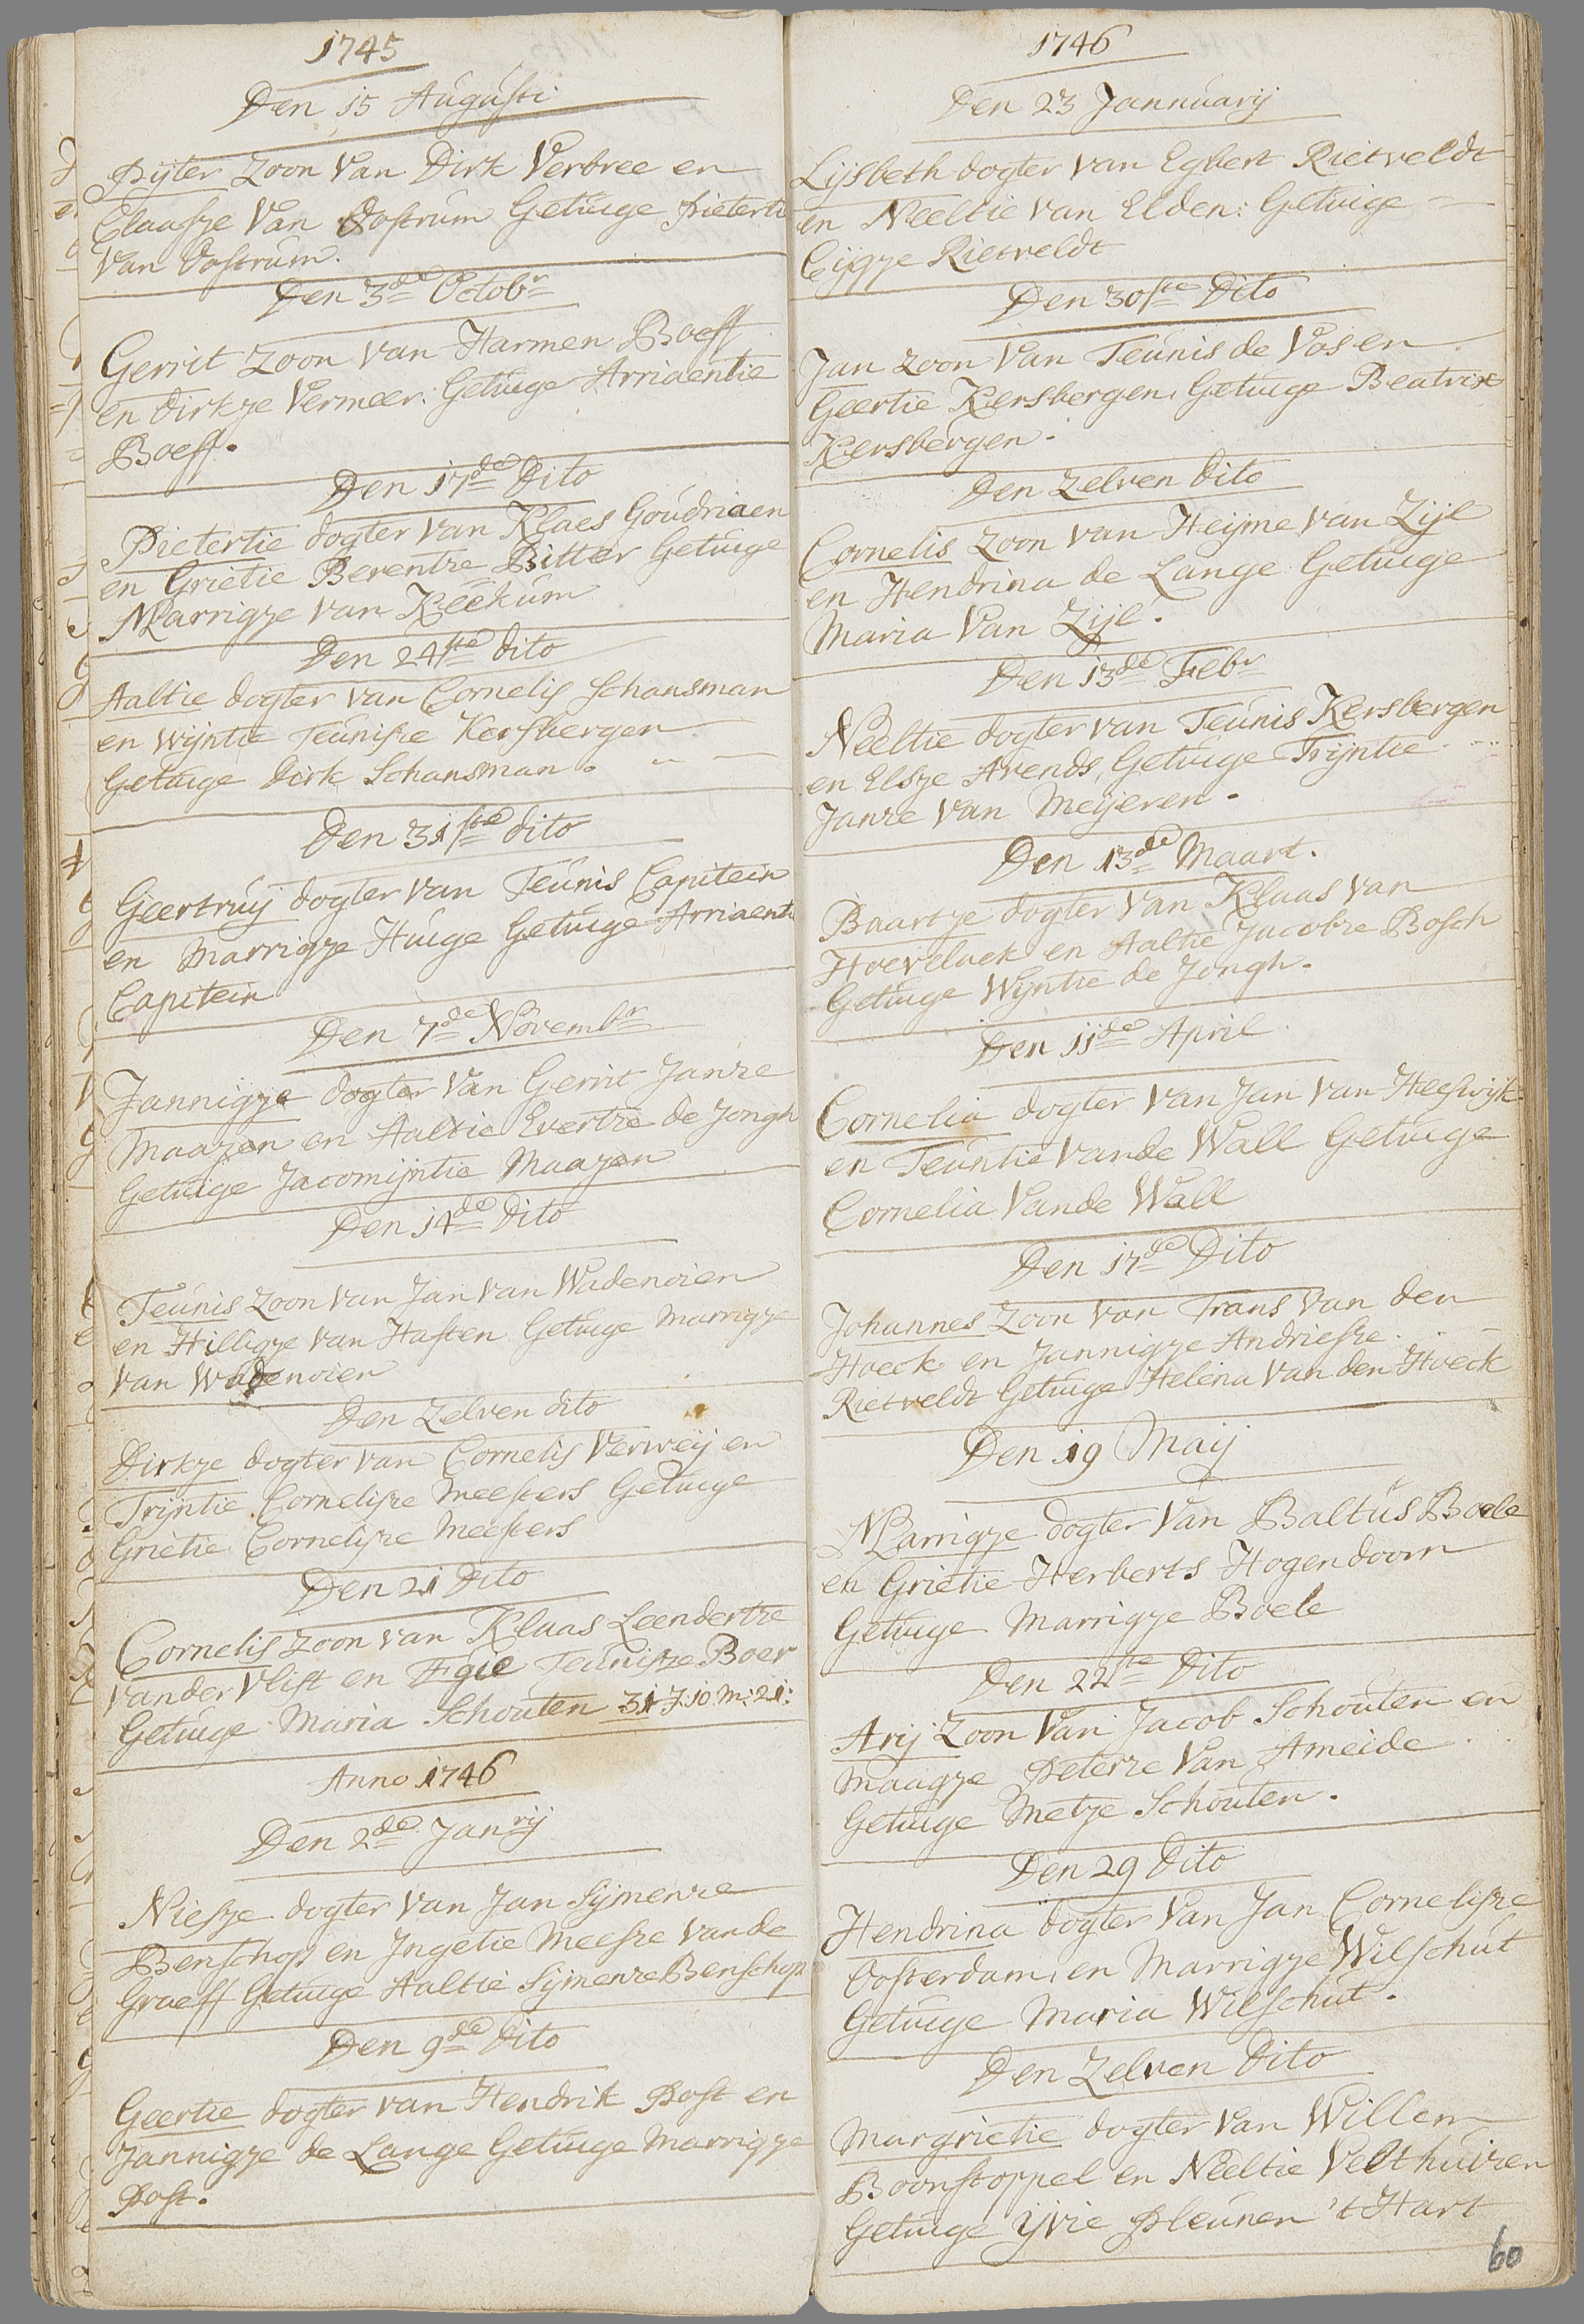 1745
Den 15 Augusti
Pijter Zoon Van Dirk Verbree en
Claasze Van Oostrum Getuige Pieterti
Van Oostrum.
Den 3de Octobr
Gerrit Zoon van Harmen Boeff
en Dirkze Vermeer: Getuige Arriaentie
Boeff.
Den 17de Dito
Pietertie dogter van Klaes Goudriaen
en Grietie Berentze Bitter Getuige
Marrigze van Keekum
Den 24ste dito
Aaltie dogter van Cornelis Schansman
en Wijntie Teunisze Kersbergen
Getuige Dirk Schansman.
Den 31ste dito
Geertruij dogter van Teunis Capitein
en Marrigze Huige Getuige Arriaent
Capitein
Den 7de Novembr
Jannigze dogter Van Gerrit Janze
Maazen en Aaltie Evertze de Jongh
Getuige Jacomijntie Maazen
Den 14de Dito
Teunis Zoon van Jan van Wadenoien
en Hilligze van Haften Getuige Marrigze
van Wadenoien
Den Zelven dito
Dirkze dogter van Cornelis Verweij en
Trijntie Cornelisze Meesters Getuige
Grietie Cornelisze Meesters
Den 21 Dito
Cornelis zoon van Klaas Leendertze
vander Vlist en Egie Teunisze Boer
Getuige Maria Schouten 31 J: 10 M: 21:
Anno 1746
Den 2de Janrij
Niesze dogter Van Jan Sijmenze
Benschop en Ingetie Meesze vande
Graeff Getuige Aaltie Sijmenze Benschop
Den 9de Dito
Geertie dogter van Hendrik Post en
Jannigze de Lange Getuige Marrigze
Post.
1746
Den 23 Jannuarij
Lijsbeth dogter van Egbert Rietveldt
en Neeltie van Elden: Getuige
Cijgze Rietveldt
Den 30ste Dito
Jan Zoon Van Teunis de Vos en
Geertie Kersbergen, Getuige Beatrix
Kersbergen.
Den Zelven Dito
Cornelis Zoon van Heijme van Zijl
en Hendrina de Lange Getuige
Maria Van Zijl.
Den 13de Febr
Neeltie dogter van Teunis Kersbergen
en Elsze Arends, Getuige Trijntie
Janze van Meijeren.
Den 13de Maart.
Baartze dogter Van Klaas van
Hoevelack en Aaltie Jacobze Bosch
Getuige Wijntie de Jongh.
Den 11de April
Cornelia dogter van Jan van Heeswijk
en Teuntie Vande Wall Getuige
Cornelia Vande Wall
Den 17de Dito
Johannes Zoon van Frans van den
Hoeck en Jannigze Andriesze
Rietveldt Getuige Helena Van den Hoeck
Den 19 Maij
Marrigze dogter Van Baltus Boele
en Grietie Herberts Hogendoorn
Getuige Marrigze Boele
Den 22ste Dito
Arij Zoon Van Jacob Schouten en
Maagze Peterze Van Ameide
Getuige Metze Schouten.
Den 29 Dito
Hendrina dogter Van Jan Cornelisze
Oosterdam, en Marrigze Wilschut
Getuige Maria Wilschut.
Den Zelven Dito
Margrietie dogter Van Willem
Boonstoppel en Neeltie Velthuizen
Getuige ijvie Pleunen 't Hart
60